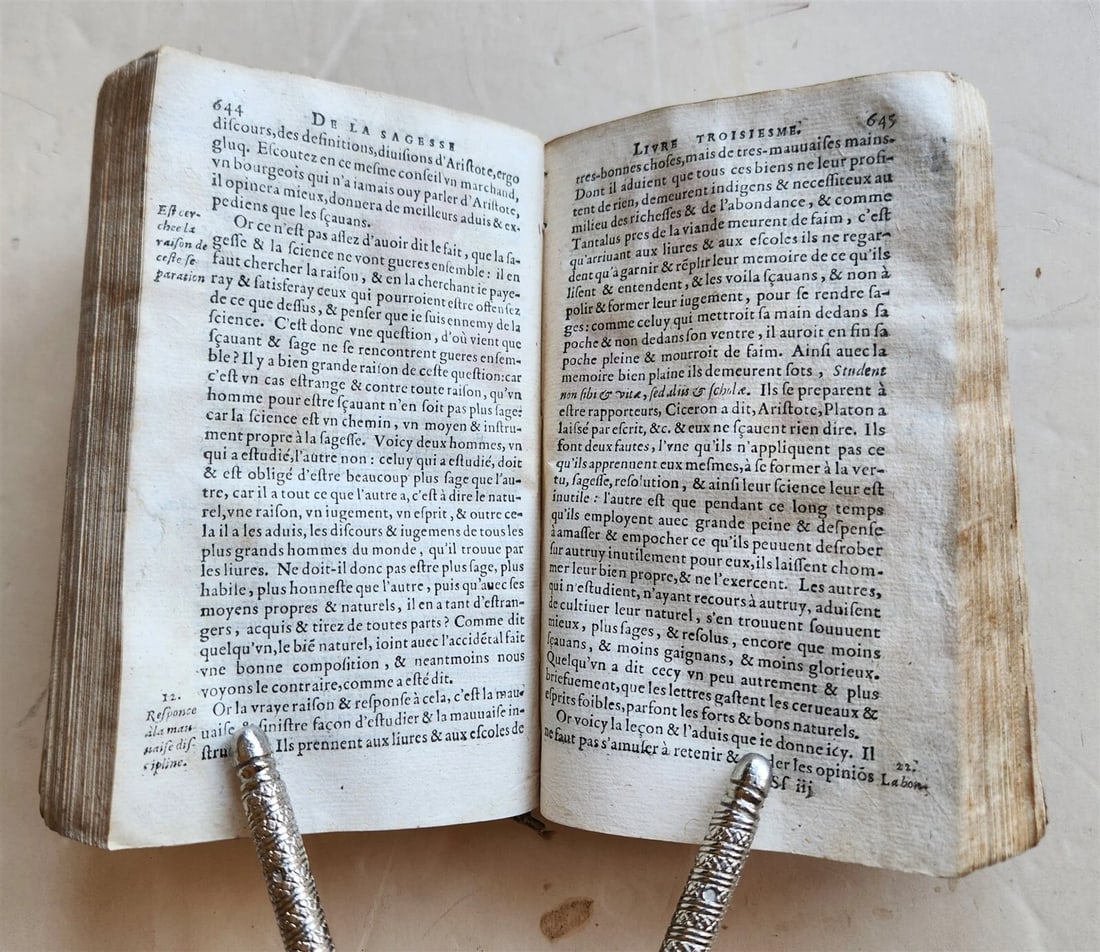 644
DE LA SAGESSE
diſcours, des definitions, diuiſions d'Ariſtote, ergo
gluq. Eſcoutez en ce meſme conſeil vn marchand,
vn bourgeois qui n'a iamais ouy parler d'Ariſtote,
il opinera mieux, donnera de meilleurs aduis & ex-
pediens que les ſçauans.
Or ce n'eſt pas aſſez d'auoir dit le fait, que la ſa-
geſſe & la ſcience ne vont gueres enſemble : il en
faut chercher la raiſon, & en la cherchant ie paye-
ray & ſatisferay ceux qui pourroient eſtre offenſez
de ce que deſſus, & penſer que ie ſuis ennemy de la
ſcience. C'eſt donc vne queſtion, d'où vient que
ſçauant & ſage ne ſe rencontrent gueres enſem-
ble? Il y a bien grande raiſon de ceſte queſtion: car
c'eſt vn cas eſtrange & contre toute raiſon, qu'vn
homme pour eſtre ſçauant n'en ſoit pas plus ſage:
car la ſcience eſt vn chemin, vn moyen & inſtru-
ment propre à la ſageſſe. Voicy deux hommes, vn
qui a eſtudié, l'autre non : celuy qui a eſtudié, doit
& eſt obligé d'eſtre beaucoup plus ſage que l'au-
tre, car il a tout ce que l'autre a, c'eſt à dire le natu-
rel, vne raiſon, vn iugement, vn eſprit, & outre ce-
la il a les aduis, les diſcours & iugemens de tous les
plus grands hommes du monde, qu'il trouue par
les liures. Ne doit-il donc pas eſtre plus ſage, plus
habile, plus honneſte que l'autre, puis qu'auec ſes
moyens propres & naturels, il en a tant d'eſtran-
gers, acquis & tirez de toutes parts? Comme dit
quelqu'vn, le biē naturel, ioint auec l'accidētal fait
vne bonne compoſition, & neantmoins nous
voyons le contraire, comme a eſté dit.
Or la vraye raiſon & reſponſe à cela, c'eſt la mau-
uaiſe & ſiniſtre façon d'eſtudier & la mauuaiſe in-
Ils prennent aux liures & aux eſcoles de
Eſt cer-
chee la
raiſon de
ceſte ſe-
paration
12.
Reſponce
à la mau-
uaiſe diſ-
cipline.
LIVRE TROISIESME.
645
tres-bonnes choſes, mais de tres-mauuaiſes mains.
Dont il aduient que tous ces biens ne leur profi-
tent de rien, demeurent indigens & neceſſiteux au
milieu des richeſſes & de l'abondance, & comme
Tantalus pres de la viande meurent de faim, c'eſt
qu'arriuant aux liures & aux eſcoles ils ne regar-
dent qu'à garnir & rēplir leur memoire de ce qu'ils
liſent & entendent, & les voila ſçauans, & non à
polir & former leur iugement, pour ſe rendre ſa-
ges : comme celuy qui mettroit ſa main dedans ſa
poche & non dedans ſon ventre, il auroit en fin ſa
poche pleine & mourroit de faim. Ainſi auec la
memoire bien plaine ils demeurent ſots, Student
non ſibi & vitæ, ſed aliis & ſcholæ. Ils ſe preparent à
eſtre rapporteurs, Ciceron a dit, Ariſtote, Platon a
laiſſé par eſcrit, &c. & eux ne ſçauent rien dire. Ils
font deux fautes, l'vne qu'ils n'appliquent pas ce
qu'ils apprennent eux meſmes, à ſe former à la ver-
tu, ſageſſe, reſolution, & ainſi leur ſcience leur eſt
inutile : l'autre eſt que pendant ce long temps
qu'ils employent auec grande peine & deſpenſe
à amaſſer & empocher ce qu'ils peuuent deſrober
ſur autruy inutilement pour eux, ils laiſſent chom-
mer leur bien propre, & ne l'exercent. Les autres,
qui n'eſtudient, n'ayant recours à autruy, aduiſent
de cultiuer leur naturel, s'en trouuent ſouuent
mieux, plus ſages, & reſolus, encore que moins
ſçauans, & moins gaignans, & moins glorieux.
Quelqu'vn a dit cecy vn peu autrement & plus
briefuement, que les lettres gaſtent les cerueaux &
eſprits foibles, parfont les forts & bons naturels.
Or voicy la leçon & l'aduis que ie donne icy. Il
ne faut pas s'amuſer à retenir & les opiniōs
22.
La bonne
Sſ iij